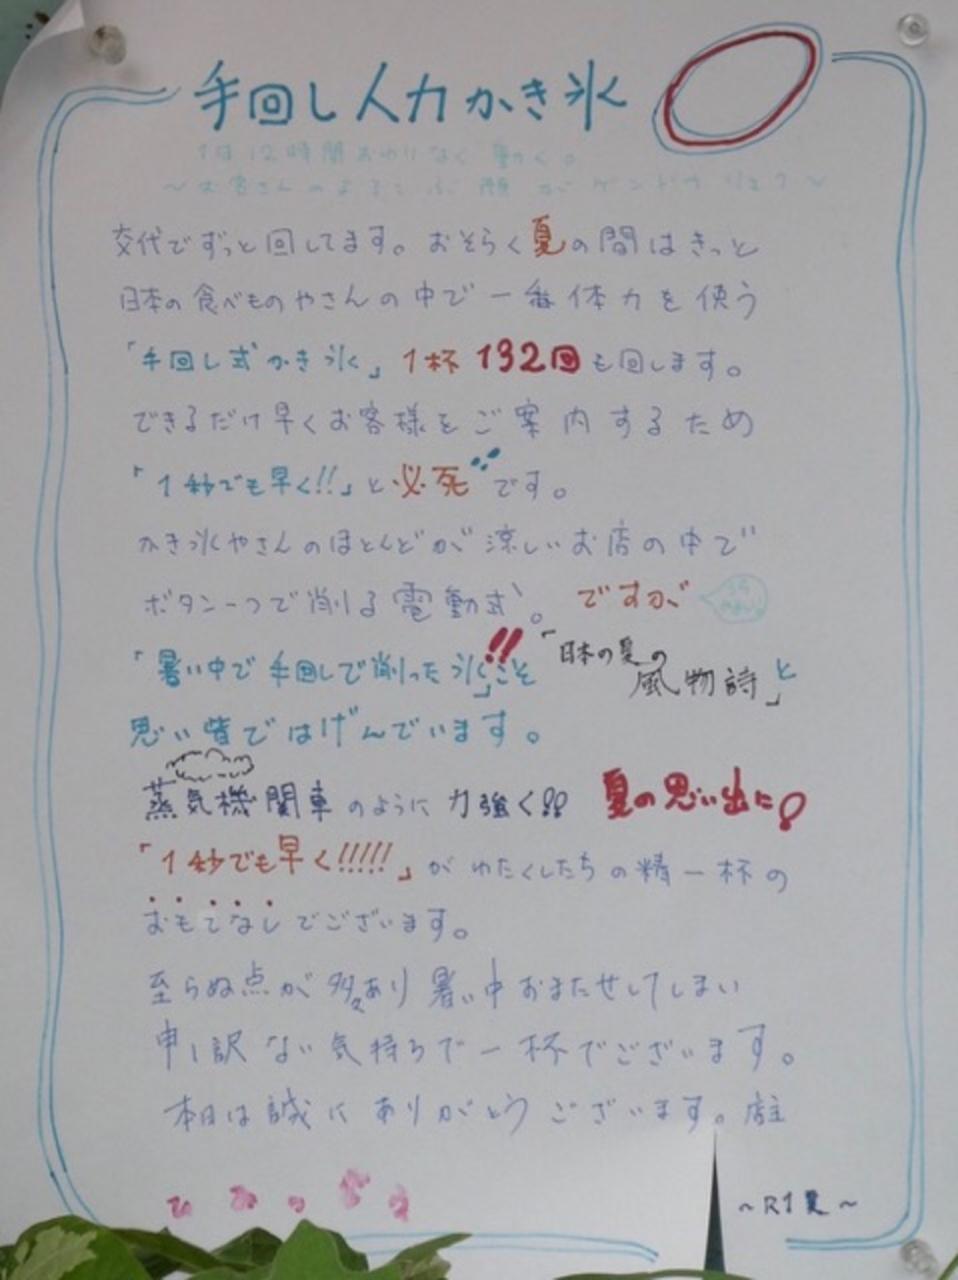 手回し人力かき氷
1日12時間おわりなく動く。
〜お客さんのよろこぶ顔がゲンドウリョク〜
交代でずっと回してます。おそらく夏の間はきっと
日本の食べものやさんの中で一番体力を使う
「手回し式かき氷」1杯132回も回します。
できるだけ早くお客様をご案内するため
「1秒でも早く!!」と必死です。
かき氷やさんのほとんどが涼しいお店の中で
ボタン一つで削る電動式。ですが
「暑い中で手回しで削った氷」こそ!!「日本の夏の風物詩」と
思い皆ではげんでいます。
蒸気機関車のように力強く!! 夏の思い出に!
「1秒でも早く!!!!!」がわたくしたちの精一杯の
おもてなしでございます。
至らぬ点が多々あり暑い中おまたせしてしまい
申し訳ない気持ちで一杯でございます。
本日は誠にありがとうございます。店主
〜R1夏〜